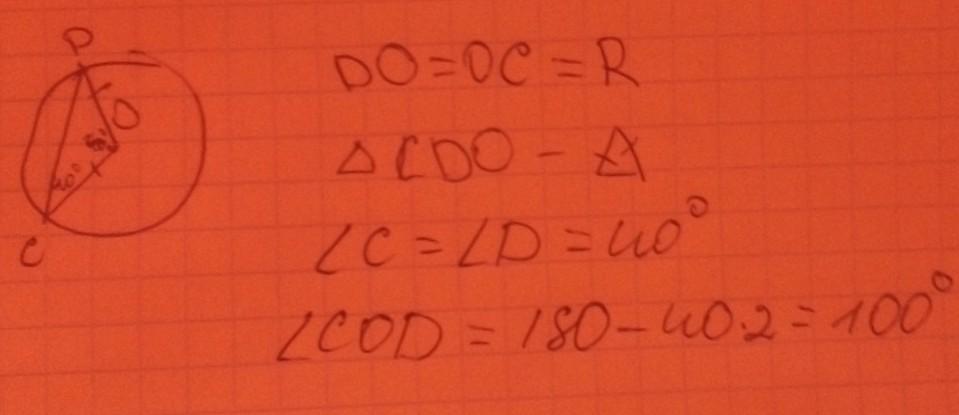 D
O
40°
C
DO=OC=R
△CDO - △
∠C=∠D=40°
∠COD=180-40·2=100°